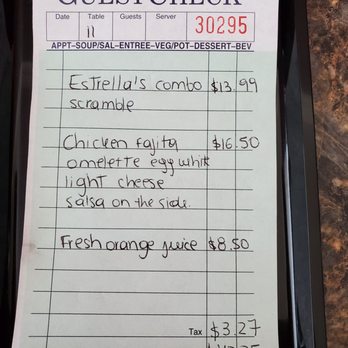 GUEST CHECK
Date Table Guests Server
11
30295
APPT-SOUP/SAL-ENTREE-VEG/POT-DESSERT-BEV
Estrella's combo $13.99
scramble
Chicken fajita $16.50
omelette egg whit
light cheese
salsa on the side.
Fresh orange juice $8.50
Tax $3.27